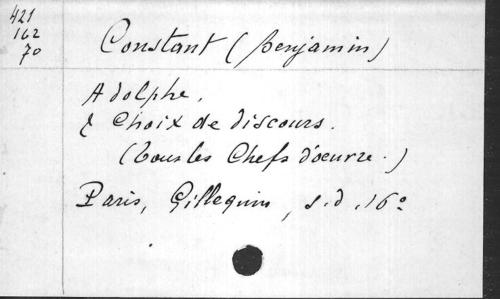 421
162
70
Constant (Benjamin)
Adolphe.
& Choix de discours.
(Tous les Chefs d'oeuvre.)
Paris, Gillequin, s.d. 16º